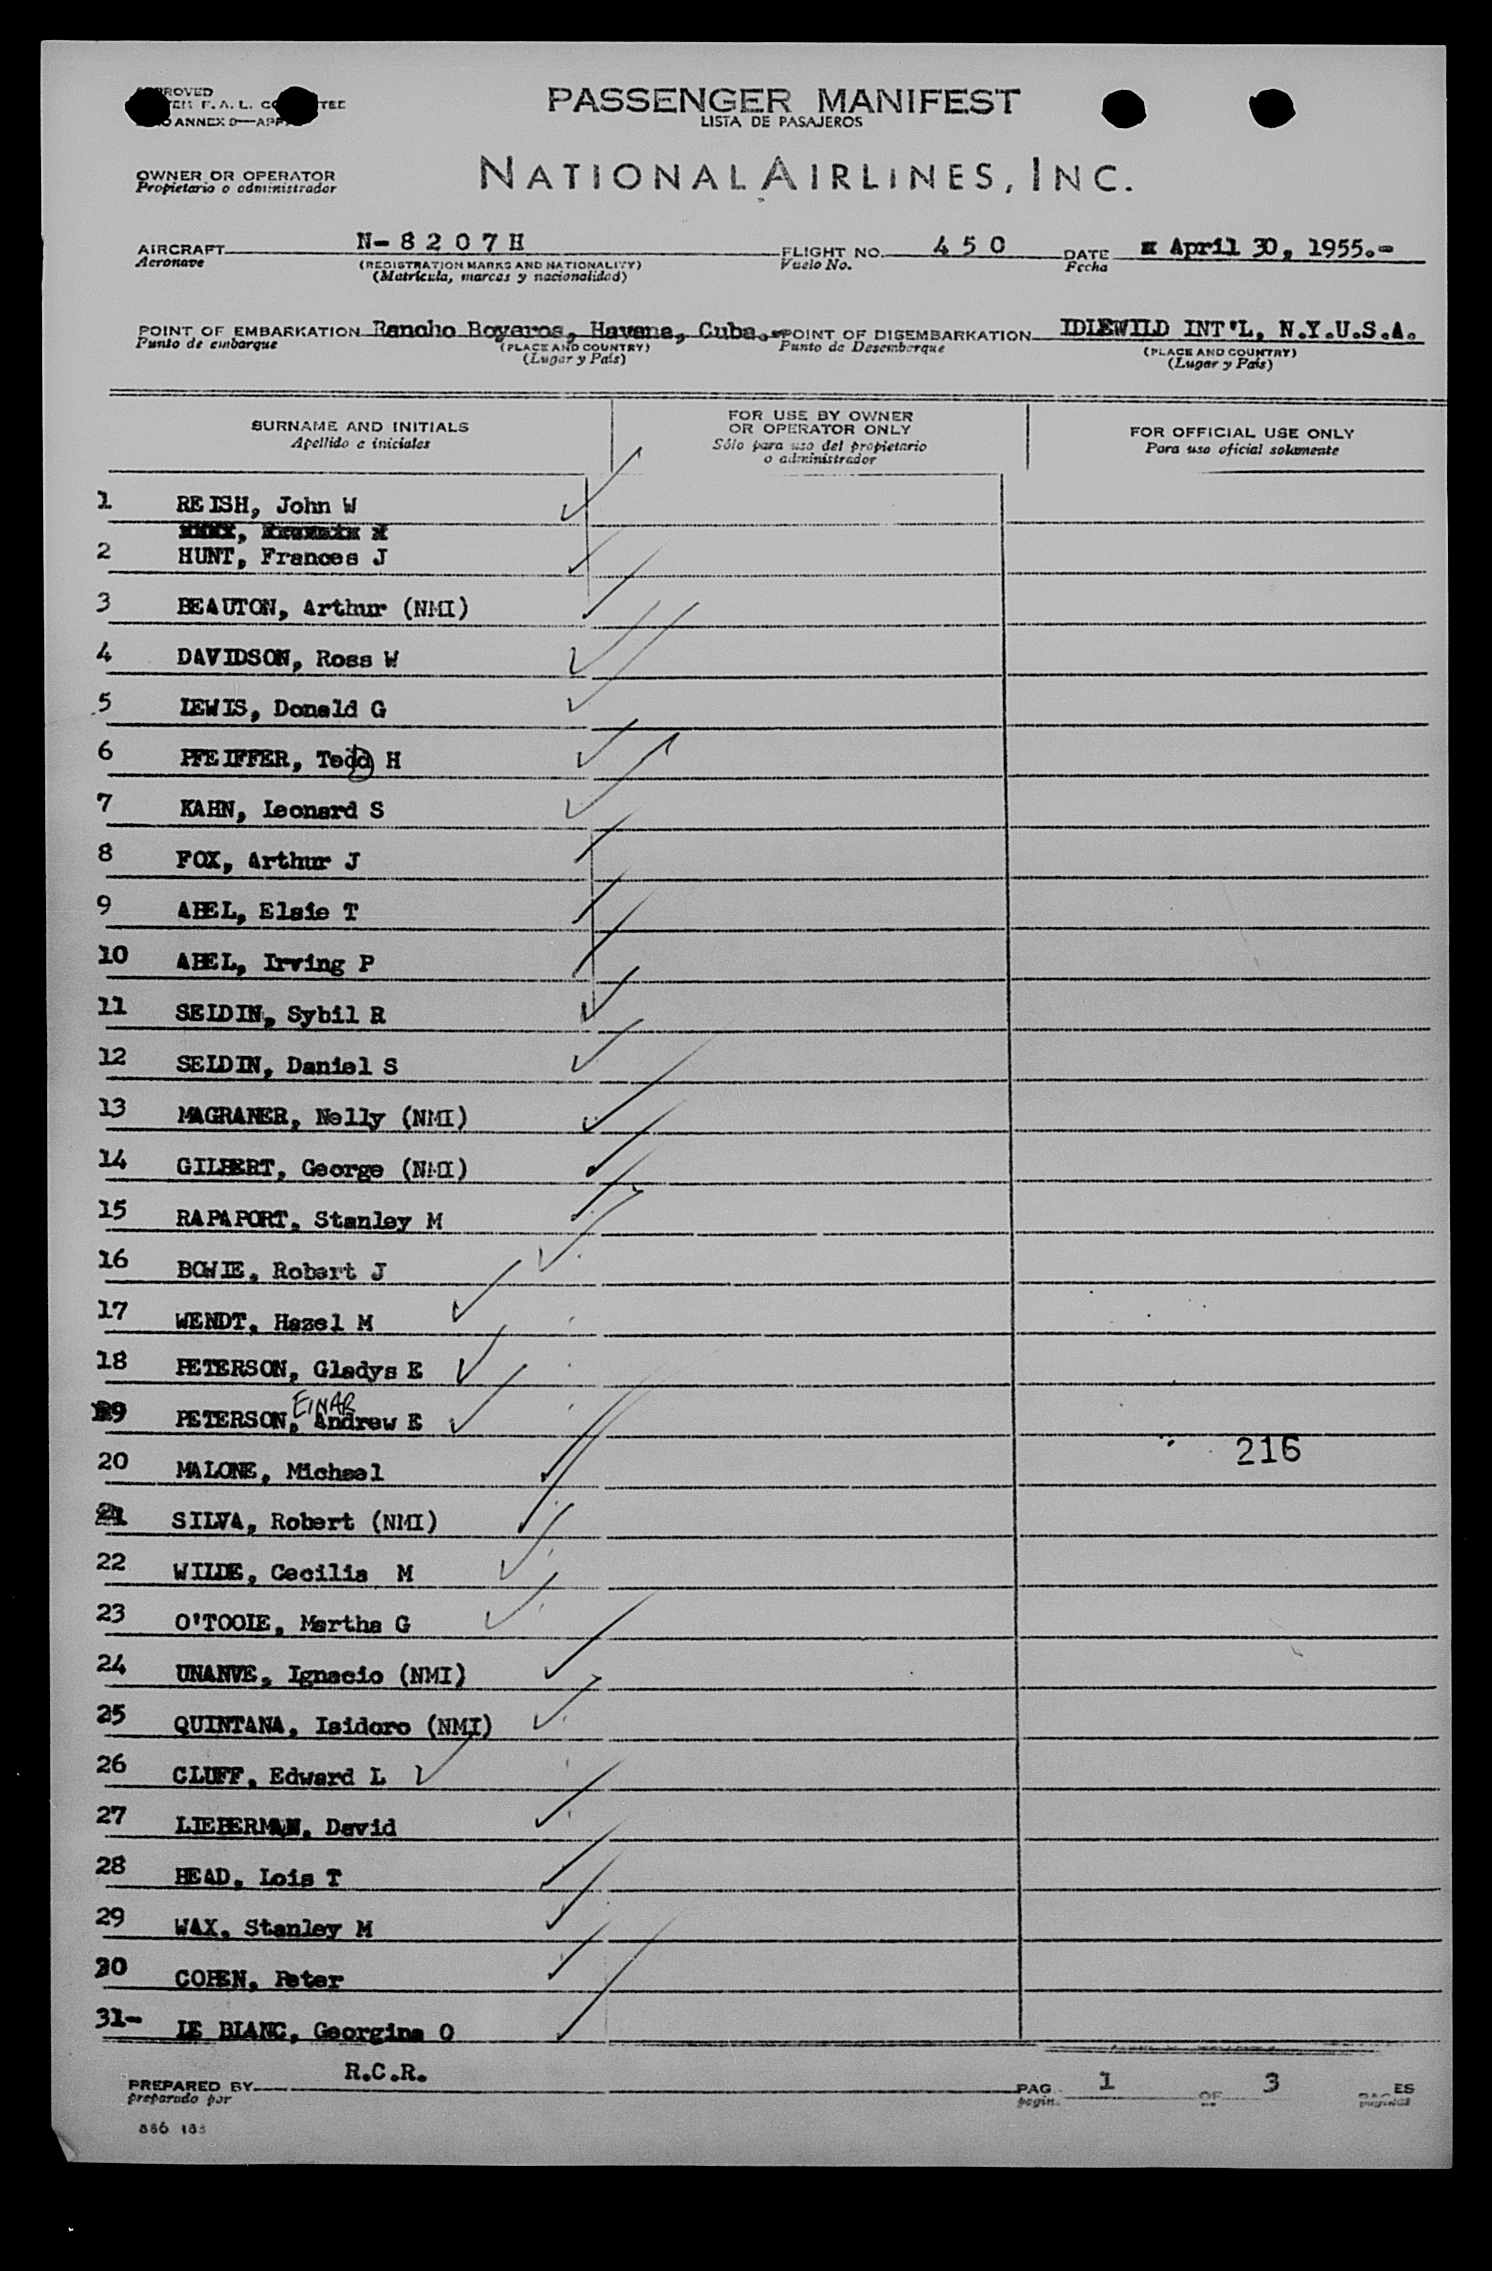 PASSENGER MANIFEST
LISTA DE PASAJEROS
OWNER OR OPERATOR
Propietario o administrador
NATIONAL AIRLINES, INC.
AIRCRAFT N-8207H FLIGHT NO. 450 DATE April 30, 1955.-
Aeronave (REGISTRATION MARKS AND NATIONALITY) Vuelo No. Fecha
(Matrícula, marcas y nacionalidad)
POINT OF EMBARKATION Rancho Boyeros, Havana, Cuba.- POINT OF DISEMBARKATION IDLEWILD INT'L, N.Y.U.S.A.
Punto de embarque (PLACE AND COUNTRY) Punto de Desembarque (PLACE AND COUNTRY)
(Lugar y País) (Lugar y País)
SURNAME AND INITIALS FOR USE BY OWNER OR OPERATOR ONLY FOR OFFICIAL USE ONLY
Apellido e iniciales Sólo para uso del propietario o administrador Para uso oficial solamente
1 REISH, John W
2 HUNT, Frances J
3 BEAUTON, Arthur (NMI)
4 DAVIDSON, Ross W
5 LEWIS, Donald G
6 PFEIFFER, Tedd H
7 KAHN, Leonard S
8 FOX, Arthur J
9 ABEL, Elsie T
10 ABEL, Irving P
11 SELDIN, Sybil R
12 SELDIN, Daniel S
13 MAGRANER, Nelly (NMI)
14 GILBERT, George (NMI)
15 RAPAPORT, Stanley M
16 BOWIE, Robert J
17 WENDT, Hazel M
18 PETERSON, Gladys E
EINAR
19 PETERSON, Andrew E
20 MALONE, Michael 216
21 SILVA, Robert (NMI)
22 WILDE, Cecilia M
23 O'TOOLE, Martha G
24 UNANVE, Ignacio (NMI)
25 QUINTANA, Isidoro (NMI)
26 CLUFF, Edward L
27 LIEBERMAN, David
28 HEAD, Lois T
29 WAX, Stanley M
30 COHEN, Peter
31- LE BLANC, Georgina O
PREPARED BY R.C.R. PAG 1 OF 3 ES
preparado por pagin.